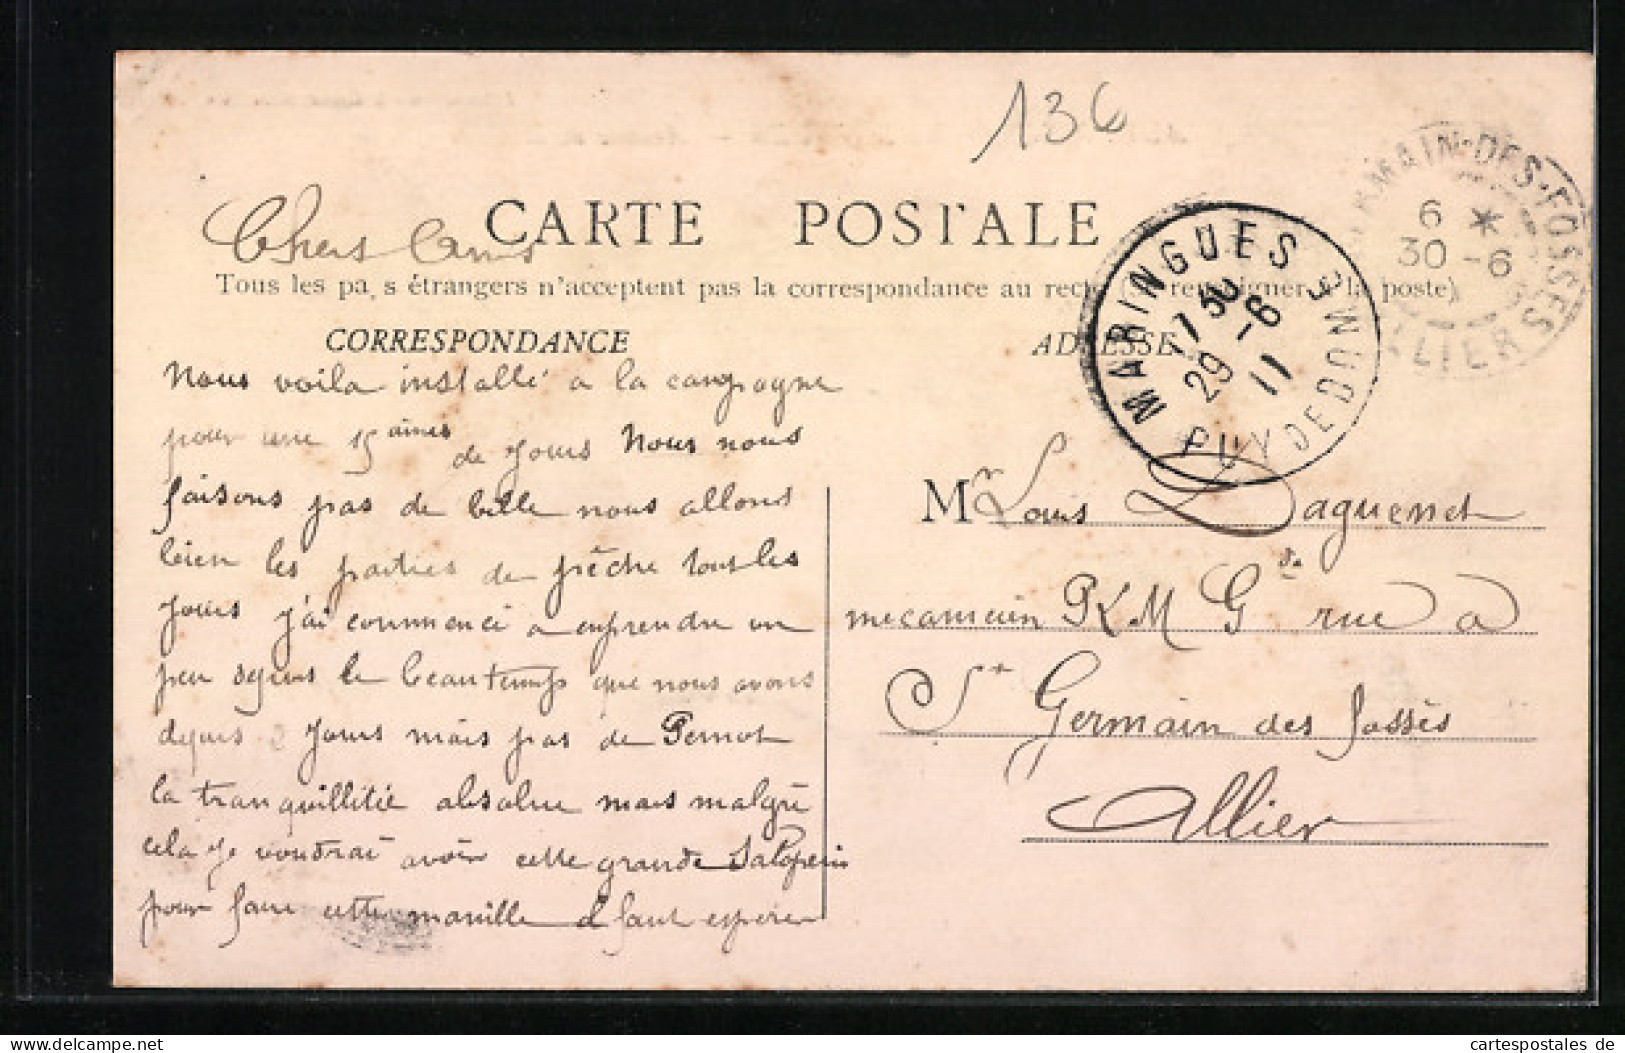 136
CARTE POSTALE
Chers Amis
Tous les pays étrangers n'acceptent pas la correspondance au recto (renseigner à la poste)
CORRESPONDANCE
ADRESSE
MARINGUES
PUY DE DOME
29 -6 11
GERMAIN-DES-FOSSES
ALLIER
6 *
30 -6
Nous voila installé a la campagne
pour une 15 aines de jours Nous nous
faisons pas de bille nous allons
bien les parties de pêche tout les
jours j'ai commencé a en prendre un
peu depuis le beau temps que nous avons
depuis 2 jours mais pas de Pernot
la tranquillitié absolue mais malgré
cela je voudrai avoir cette grande
pour faire cette manille il faut esperer
Mr Louis Daguenet
mecanicien P L M Gde rue a
St Germain des fossés
Allier
www.delcampe.net
cartespostales de